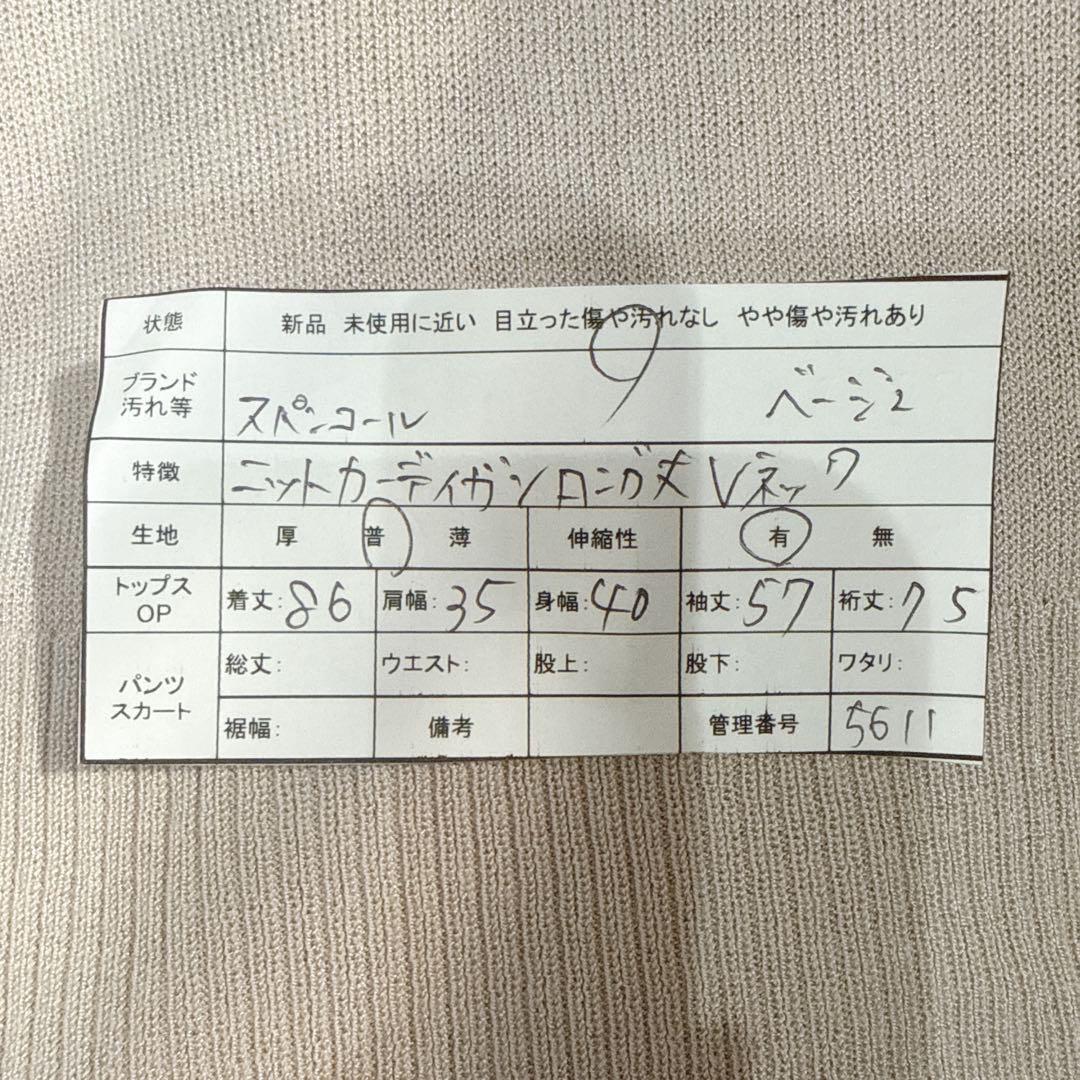 状態 新品 未使用に近い 目立った傷や汚れなし やや傷や汚れあり
ブランド
汚れ等 スパンコール ベージュ
特徴 ニットカーディガン ロング丈 Vネック
生地 厚 普 薄 伸縮性 有 無
トップス
OP 着丈:86 肩幅:35 身幅:40 袖丈:57 裄丈:75
パンツ
スカート 総丈: ウエスト: 股上: 股下: ワタリ:
裾幅: 備考 管理番号 5611